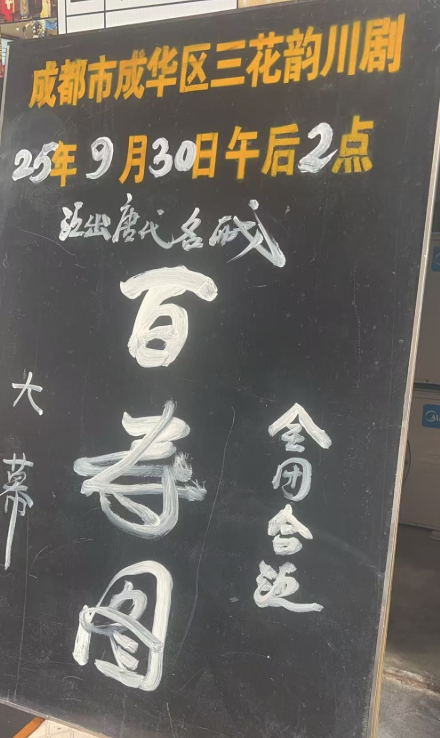 成都市成华区三花韵川剧
25年9月30日午后2点
演出唐代名戏
百寿图
全团合演
大幕